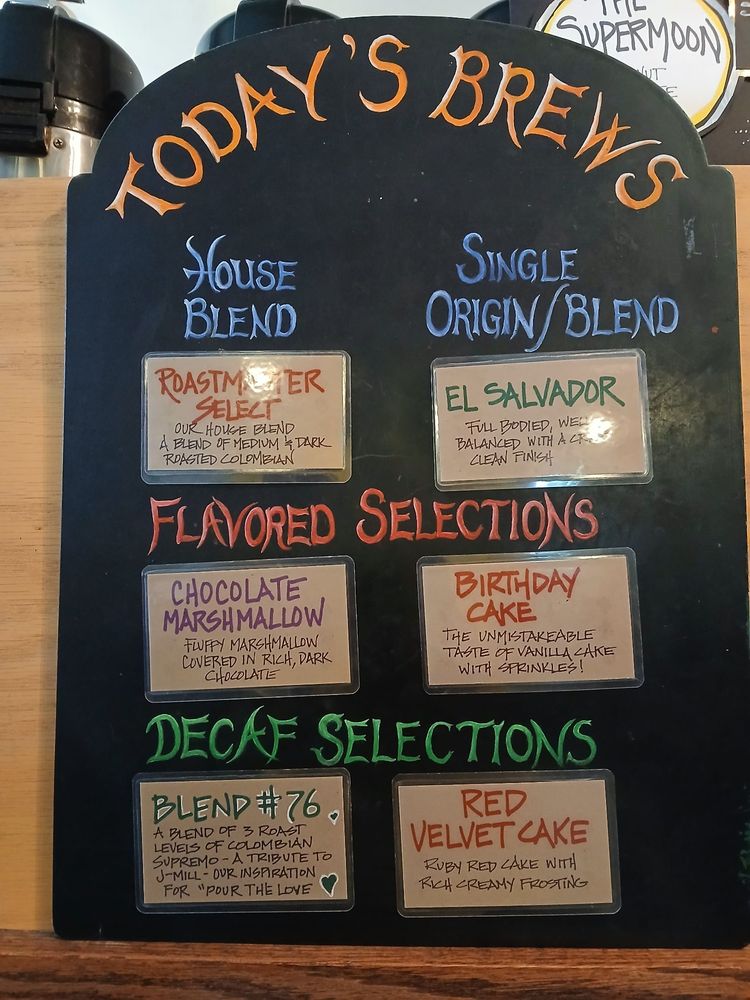 THE
SUPERMOON
TODAY'S BREWS
HOUSE
BLEND
SINGLE
ORIGIN/BLEND
ROASTMASTER
SELECT
OUR HOUSE BLEND
A BLEND OF MEDIUM & DARK
ROASTED COLOMBIAN
EL SALVADOR
FULL BODIED, WELL
BALANCED WITH A
CLEAN FINISH
FLAVORED SELECTIONS
CHOCOLATE
MARSHMALLOW
FLUFFY MARSHMALLOW
COVERED IN RICH, DARK
CHOCOLATE
BIRTHDAY
CAKE
THE UNMISTAKEABLE
TASTE OF VANILLA CAKE
WITH SPRINKLES!
DECAF SELECTIONS
BLEND #76
A BLEND OF 3 ROAST
LEVELS OF COLOMBIAN
SUPREMO - A TRIBUTE TO
J-MILL - OUR INSPIRATION
FOR "POUR THE LOVE
RED
VELVET CAKE
RUBY RED CAKE WITH
RICH CREAMY FROSTING